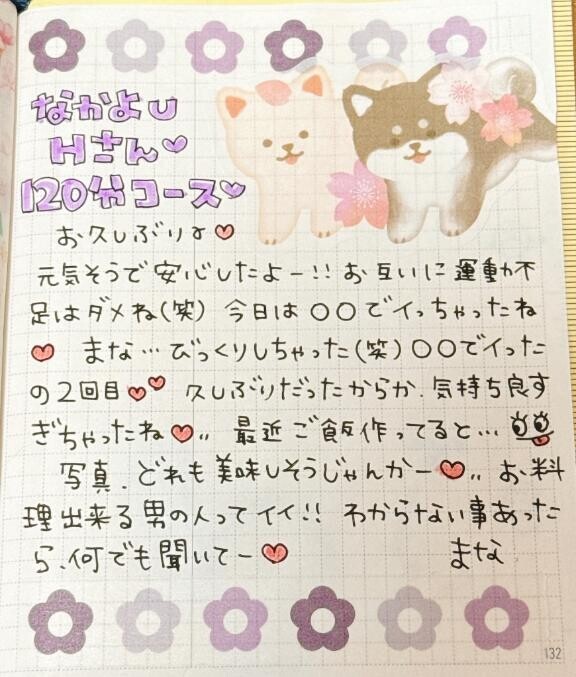 なかよし
Hさん♡
120分コース♡
お久しぶりよ♡
元気そうで安心したよー!! お互いに運動不
足はダメね(笑) 今日は〇〇でイっちゃったね
♡ まな…びっくりしちゃった(笑)〇〇でイった
の2回目♡♡ 久しぶりだったからか、気持ち良す
ぎちゃったね♡〃 最近ご飯作ってると…
写真、どれも美味しそうじゃんかー♡〃 お料
理出来る男の人ってイイ!! わからない事あった
ら、何でも聞いてー♡ まな
132